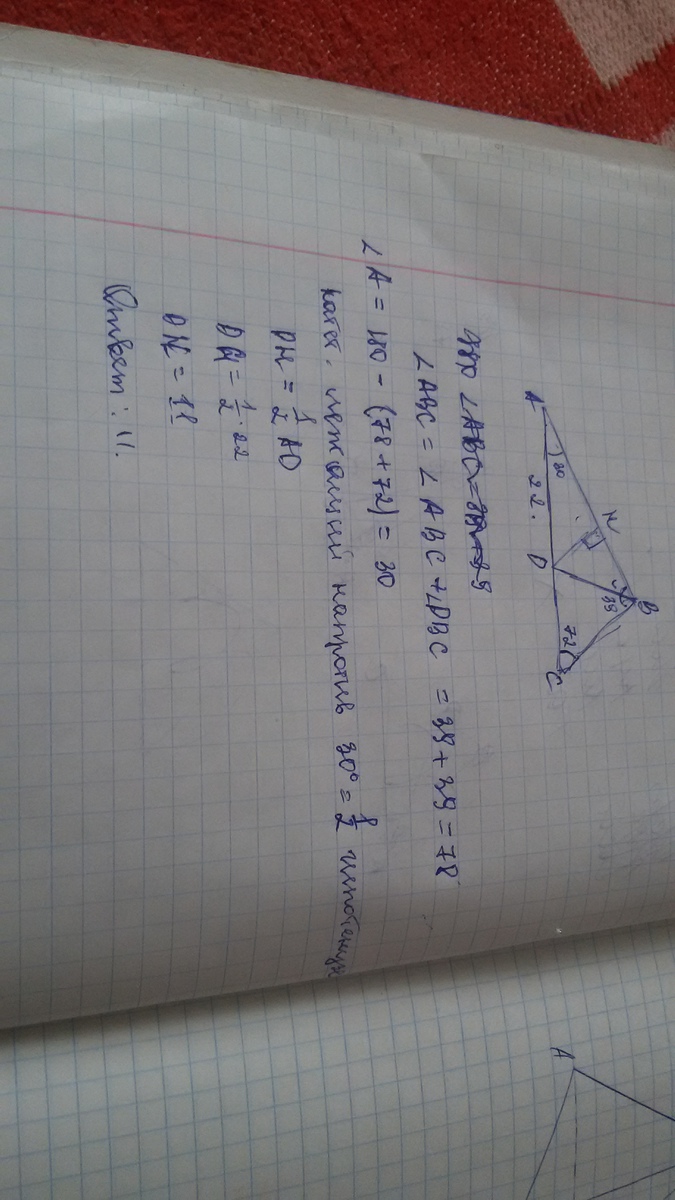 A
30
22.
N
D
B
39
72
C
∠ABC = ∠ABC + ∠DBC = 39 + 39 = 78
∠A = 180 - (78 + 72) = 30
катет, лежащий напротив 30° = 1/2 гипотенузы
DH = 1/2 AD
DH = 1/2 · 22
DH = 11
Ответ: 11.
A